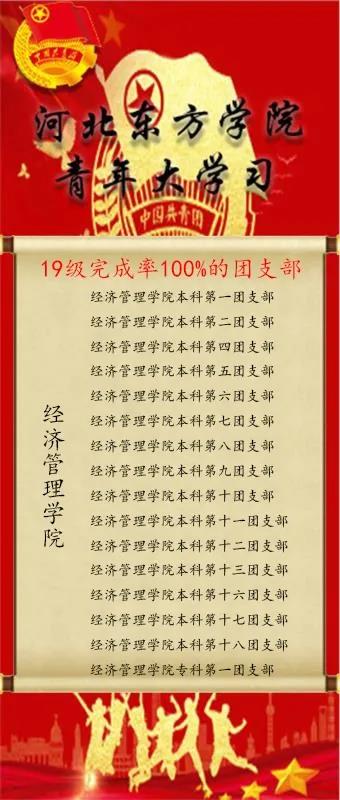 中国共青团
河北东方学院
青年大学习
中国共青团
19级完成率100%的团支部
经济管理学院
经济管理学院本科第一团支部
经济管理学院本科第二团支部
经济管理学院本科第四团支部
经济管理学院本科第五团支部
经济管理学院本科第六团支部
经济管理学院本科第七团支部
经济管理学院本科第八团支部
经济管理学院本科第九团支部
经济管理学院本科第十团支部
经济管理学院本科第十一团支部
经济管理学院本科第十二团支部
经济管理学院本科第十三团支部
经济管理学院本科第十六团支部
经济管理学院本科第十七团支部
经济管理学院本科第十八团支部
经济管理学院专科第一团支部